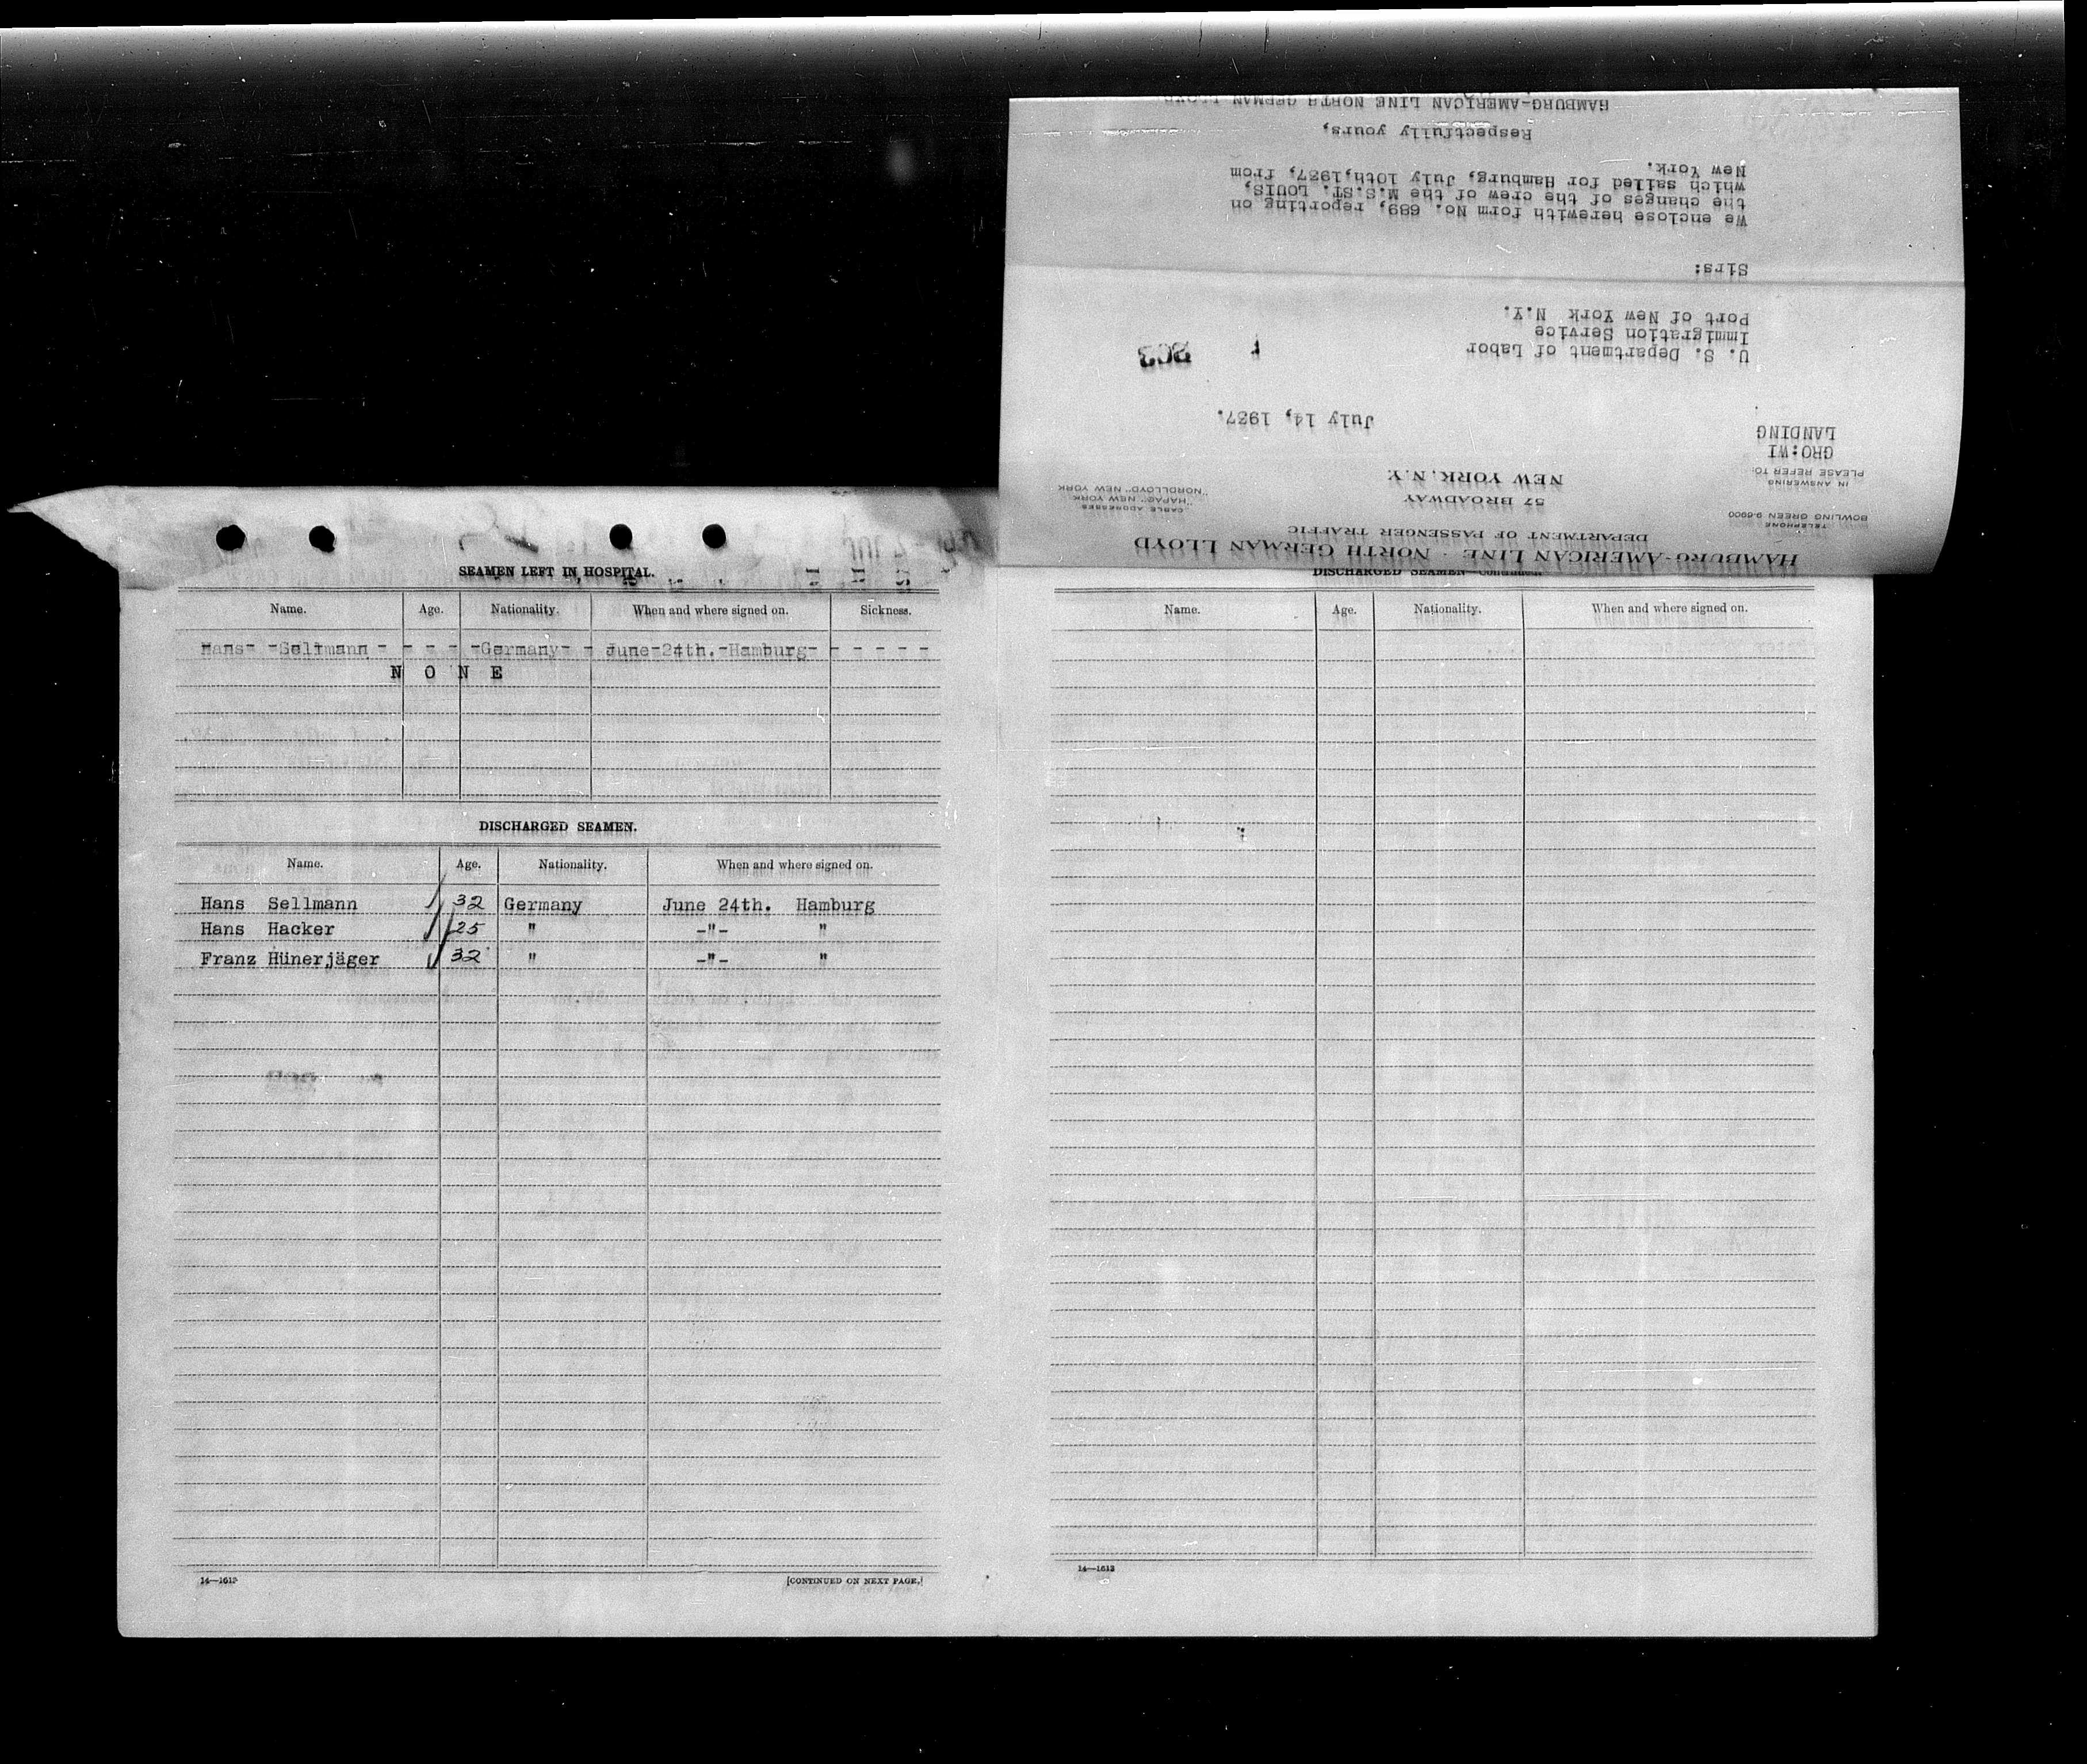 HAMBURG-AMERICAN LINE · NORTH GERMAN LLOYD
DEPARTMENT OF PASSENGER TRAFFIC
57 BROADWAY
NEW YORK, N.Y.
TELEPHONE
BOWLING GREEN 9-6900
IN ANSWERING
PLEASE REFER TO:
GRO:WI
LANDING
CABLE ADDRESSES
"HAPAG" NEW YORK
"NORDLLOYD" NEW YORK
July 14, 1937.
U. S. Department of Labor
Immigration Service
Port of New York N.Y.
Sirs:
We enclose herewith form No. 689, reporting on
the changes of the crew of the M.S.ST. LOUIS,
which sailed for Hamburg, July 10th,1937, from
New York.
Respectfully yours,
HAMBURG-AMERICAN LINE NORTH GERMAN LLOYD
SEAMEN LEFT IN HOSPITAL.
Name. Age. Nationality. When and where signed on. Sickness.
Hans- -Sellmann - - - - -Germany- - June-24th.-Hamburg- - - - - -
N O N E
DISCHARGED SEAMEN.
Name. Age. Nationality. When and where signed on.
Hans Sellmann 32 Germany June 24th. Hamburg
Hans Hacker 25 " -"- "
Franz Hünerjäger 32 " -"- "
14—1613
[CONTINUED ON NEXT PAGE.]
DISCHARGED SEAMEN—Continued.
Name. Age. Nationality. When and where signed on.
14—1613